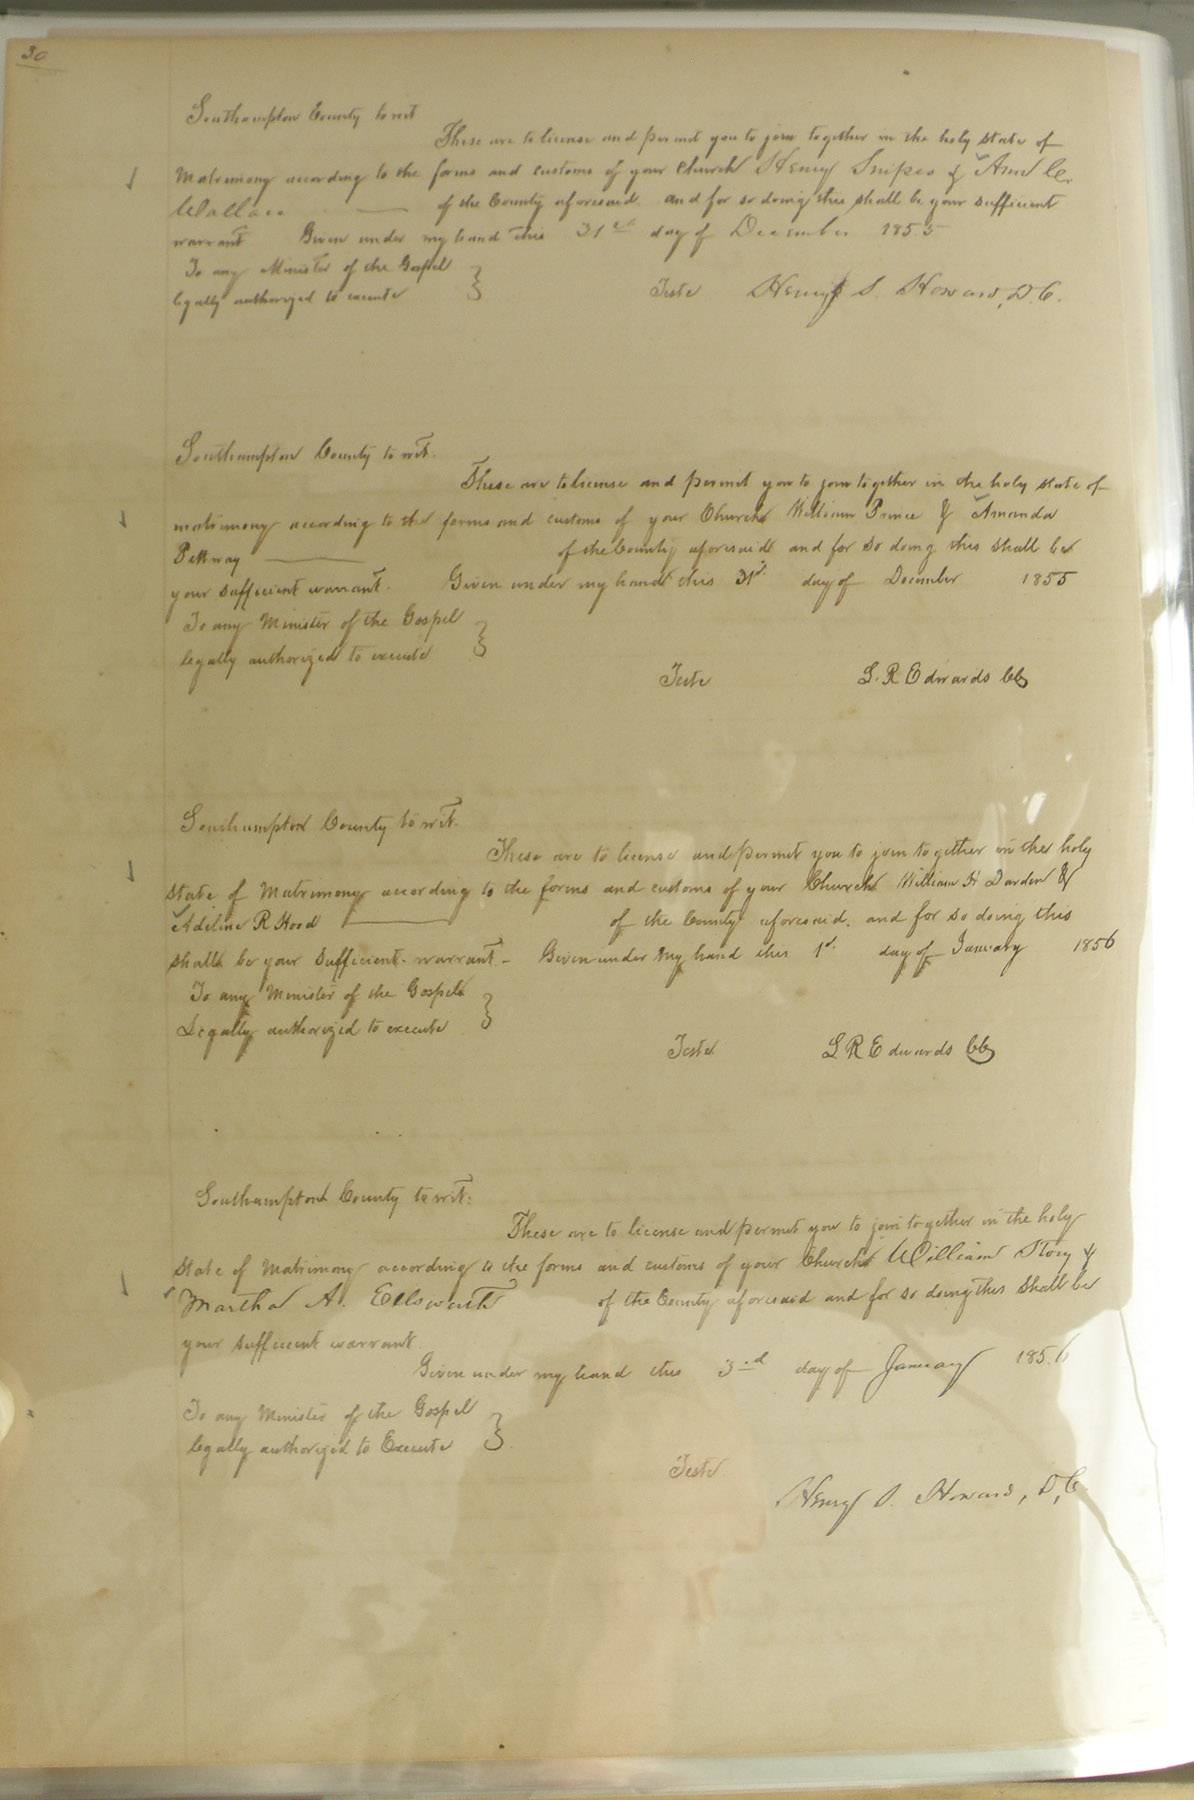 30
Southampton County to wit
These are to license and permit you to join together in the holy state of
Matrimony according to the forms and customs of your Church Henry Snipes & Ann C.
Wallace — of the County aforesaid and for so doing this shall be your sufficient
warrant Given under my hand this 31st day of December 1855
To any Minister of the Gospel
legally authorized to execute }
Teste Henry S. Howard, D.C.
Southampton County to wit.
These are to license and permit you to join together in the holy state of
matrimony according to the forms and customs of your Church William Prince & Amanda
Pettway — of the County aforesaid and for so doing this shall be
your sufficient warrant. Given under my hand this 31st day of December 1855
To any Minister of the Gospel
legally authorized to execute }
Teste L. R Edwards CC
Southampton County to wit.
These are to license and permit you to join together in the holy
state of Matrimony according to the forms and customs of your Church William H Darden &
Adeline R Hood — of the County aforesaid. and for so doing this
shall be your sufficient warrant - Given under my hand this 1st day of January 1856
To any Minister of the Gospel
Legally authorized to execute }
Teste L R Edwards CC
Southampton County to wit:
These are to license and permit you to join together in the holy
state of Matrimony according to the forms and customs of your Church William Story &
Martha A. Ellsworth of the County aforesaid and for so doing this shall be
your sufficient warrant
Given under my hand this 3rd day of January 1856
To any Minister of the Gospel
legally authorized to Execute }
Teste
Henry S. Howard, D,C